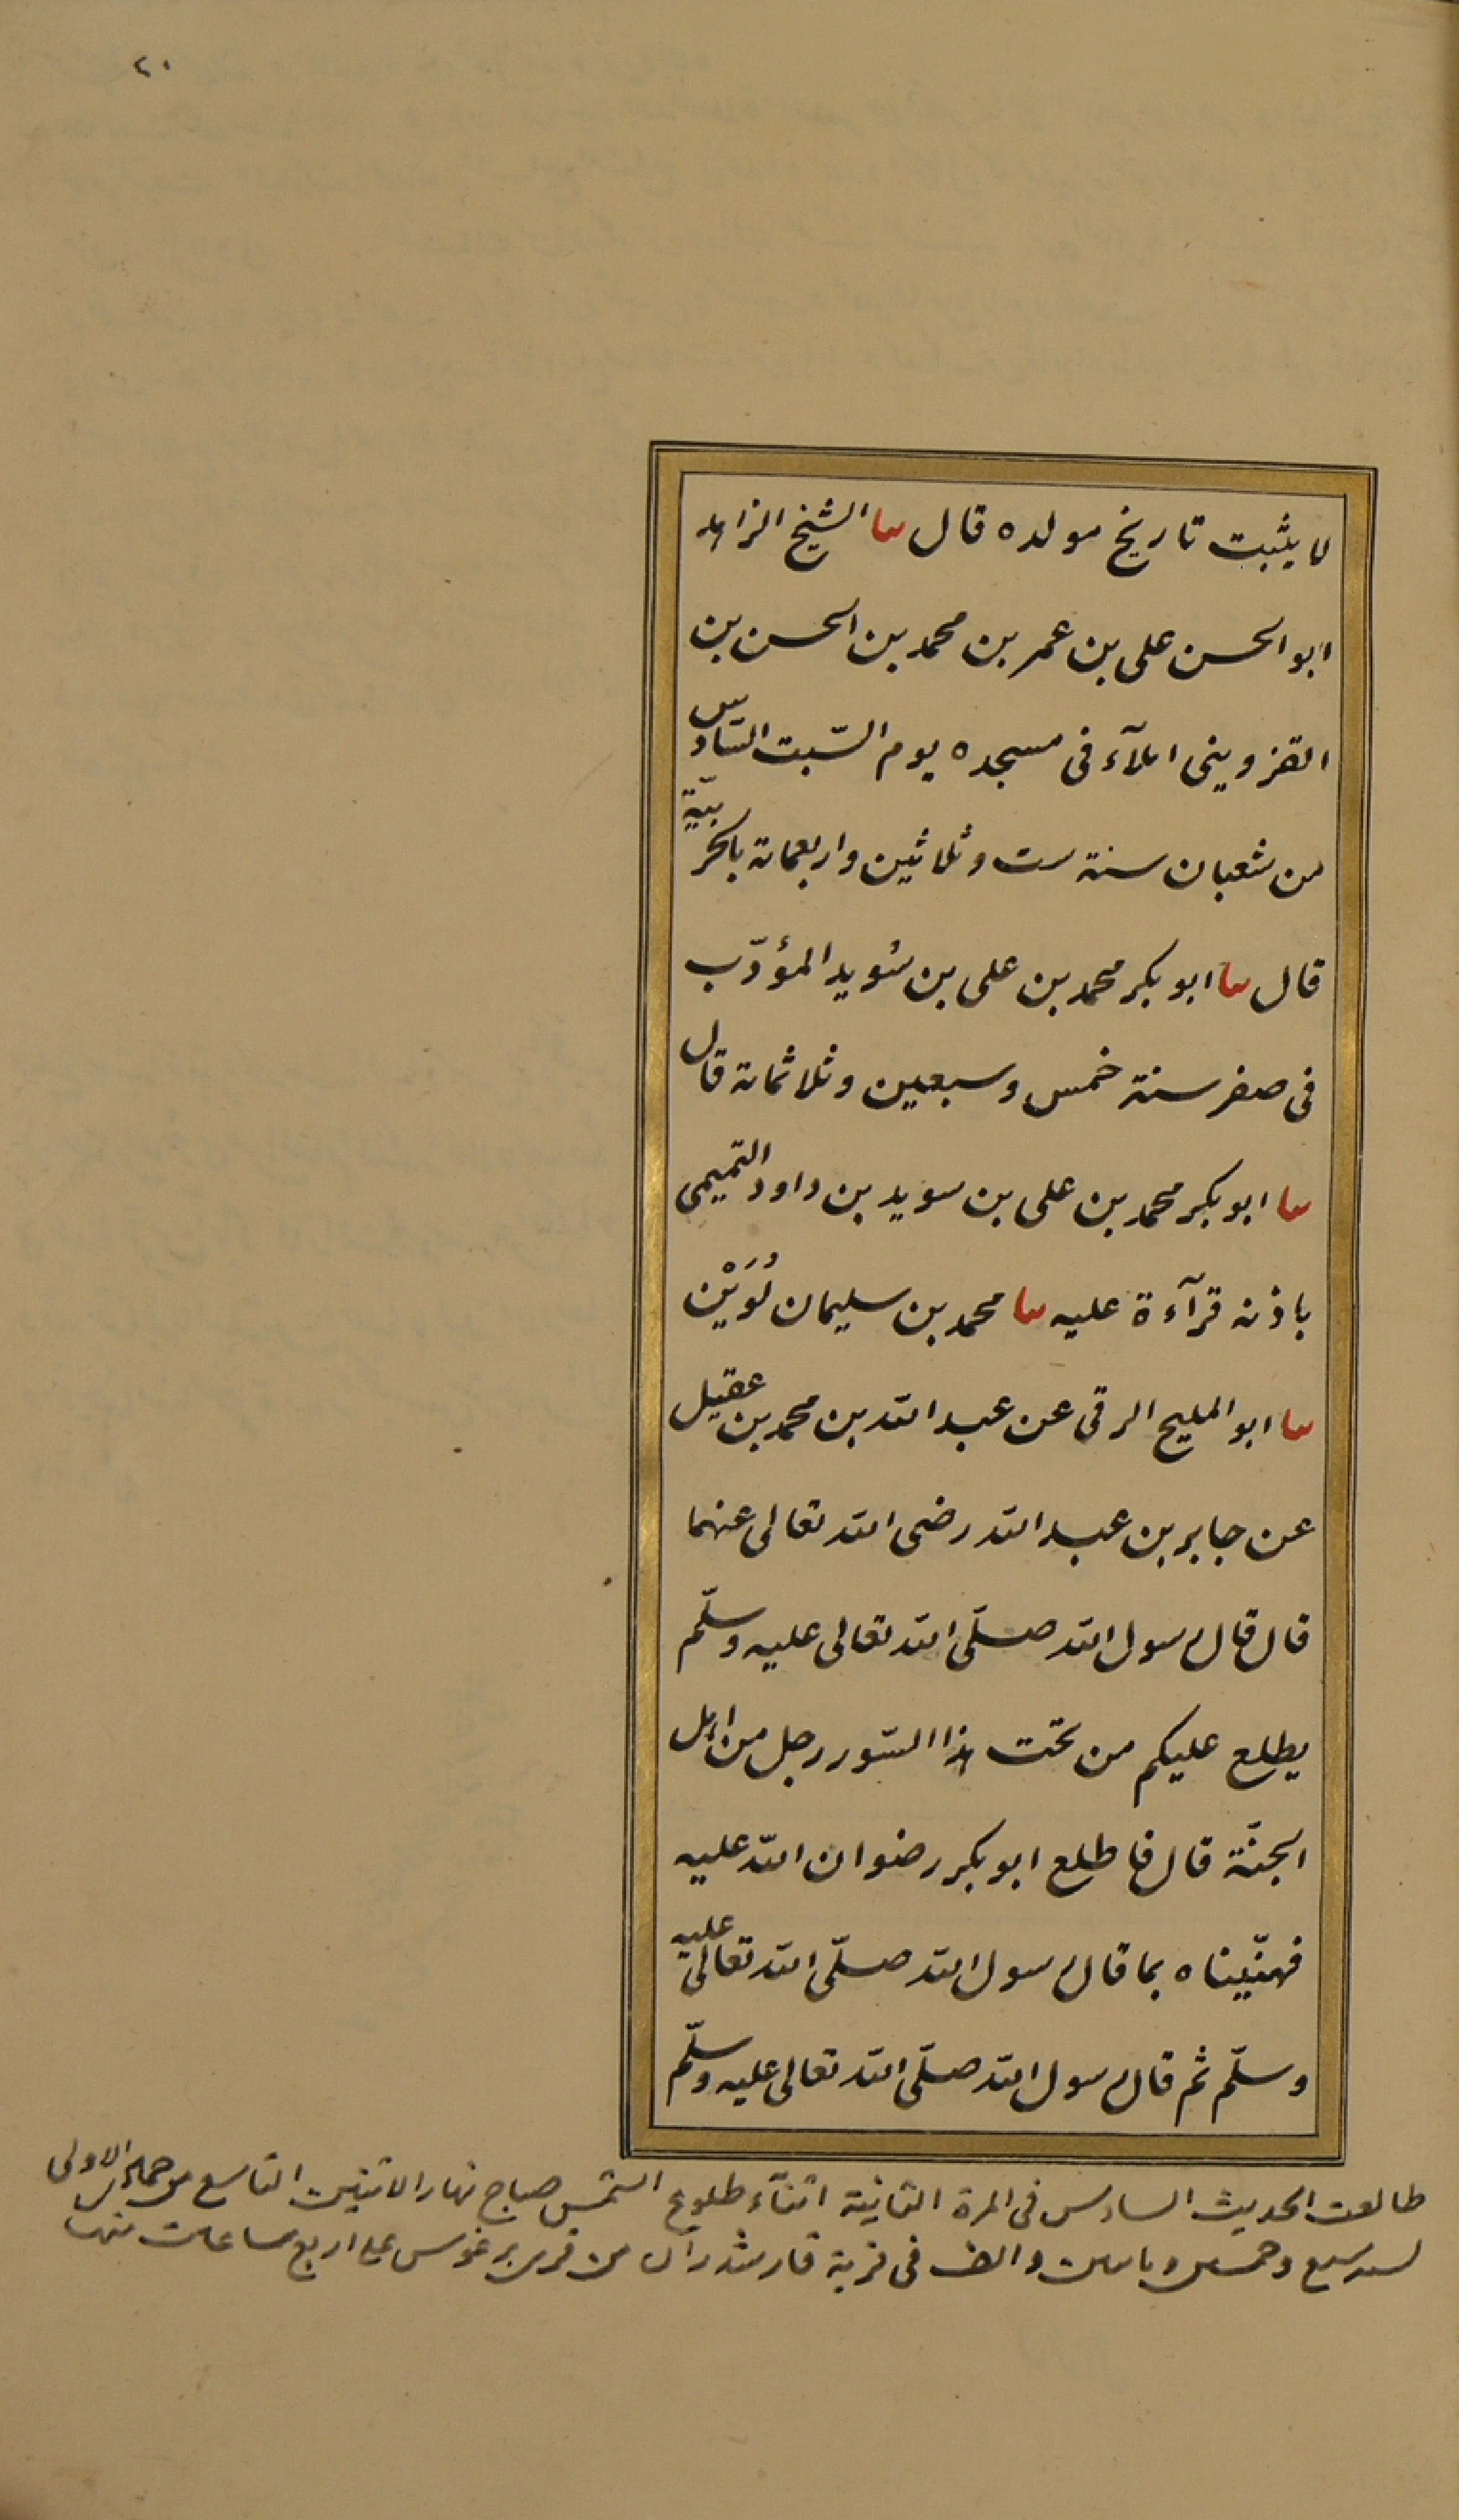 ٢٠
لا يثبت تاريخ مولده قال ثنا الشيخ الزاهد
ابو الحسن على بن عمر بن محمد بن الحسن بن
القزوينى املآء فى مسجده يوم السّبت السّادس
من شعبان سنة ست وثلاثين واربعمائة بالحربيّة
قال ثنا ابو بكر محمد بن على بن سُويد المؤدّب
فى صفر سنة خمس وسبعين وثلاثمائة قال
ثنا ابو بكر محمد بن على بن سويد بن داود التميمى
باذنه قرآءة عليه ثنا محمد بن سليمان لُوَيْن
ثنا ابو المليح الرقى عن عبد الله بن محمد بن عقيل
عن جابر بن عبد الله رضى الله تعالى عنهما
قال قال رسول الله صلّى الله تعالى عليه وسلّم
يطلع عليكم من تحت هذا السّور رجل من اهل
الجنّة قال فاطلع ابو بكر رضوان الله عليه
فهنّيناه بما قال رسول الله صلّى الله تعالى عليه
وسلّم ثم قال رسول الله صلّى الله تعالى عليه وسلّم
طالعت الحديث السادس فى المرة الثانية اثنآء طلوع الشمس صباح نهار الاثنين التاسع من جمادى الاولى
لسنة سبع وخمسين ومائتين والف فى قرية من قرى برغوس على اربع ساعات منها